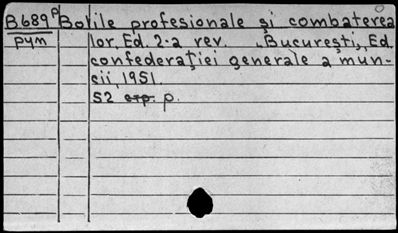 B689P Bolile profesionale şi combaterea
рум lor. Ed. 2-a rev. „Bucureşti", Ed.
confederaţiei generale a mun-
cii, 1951.
52 стр. p.